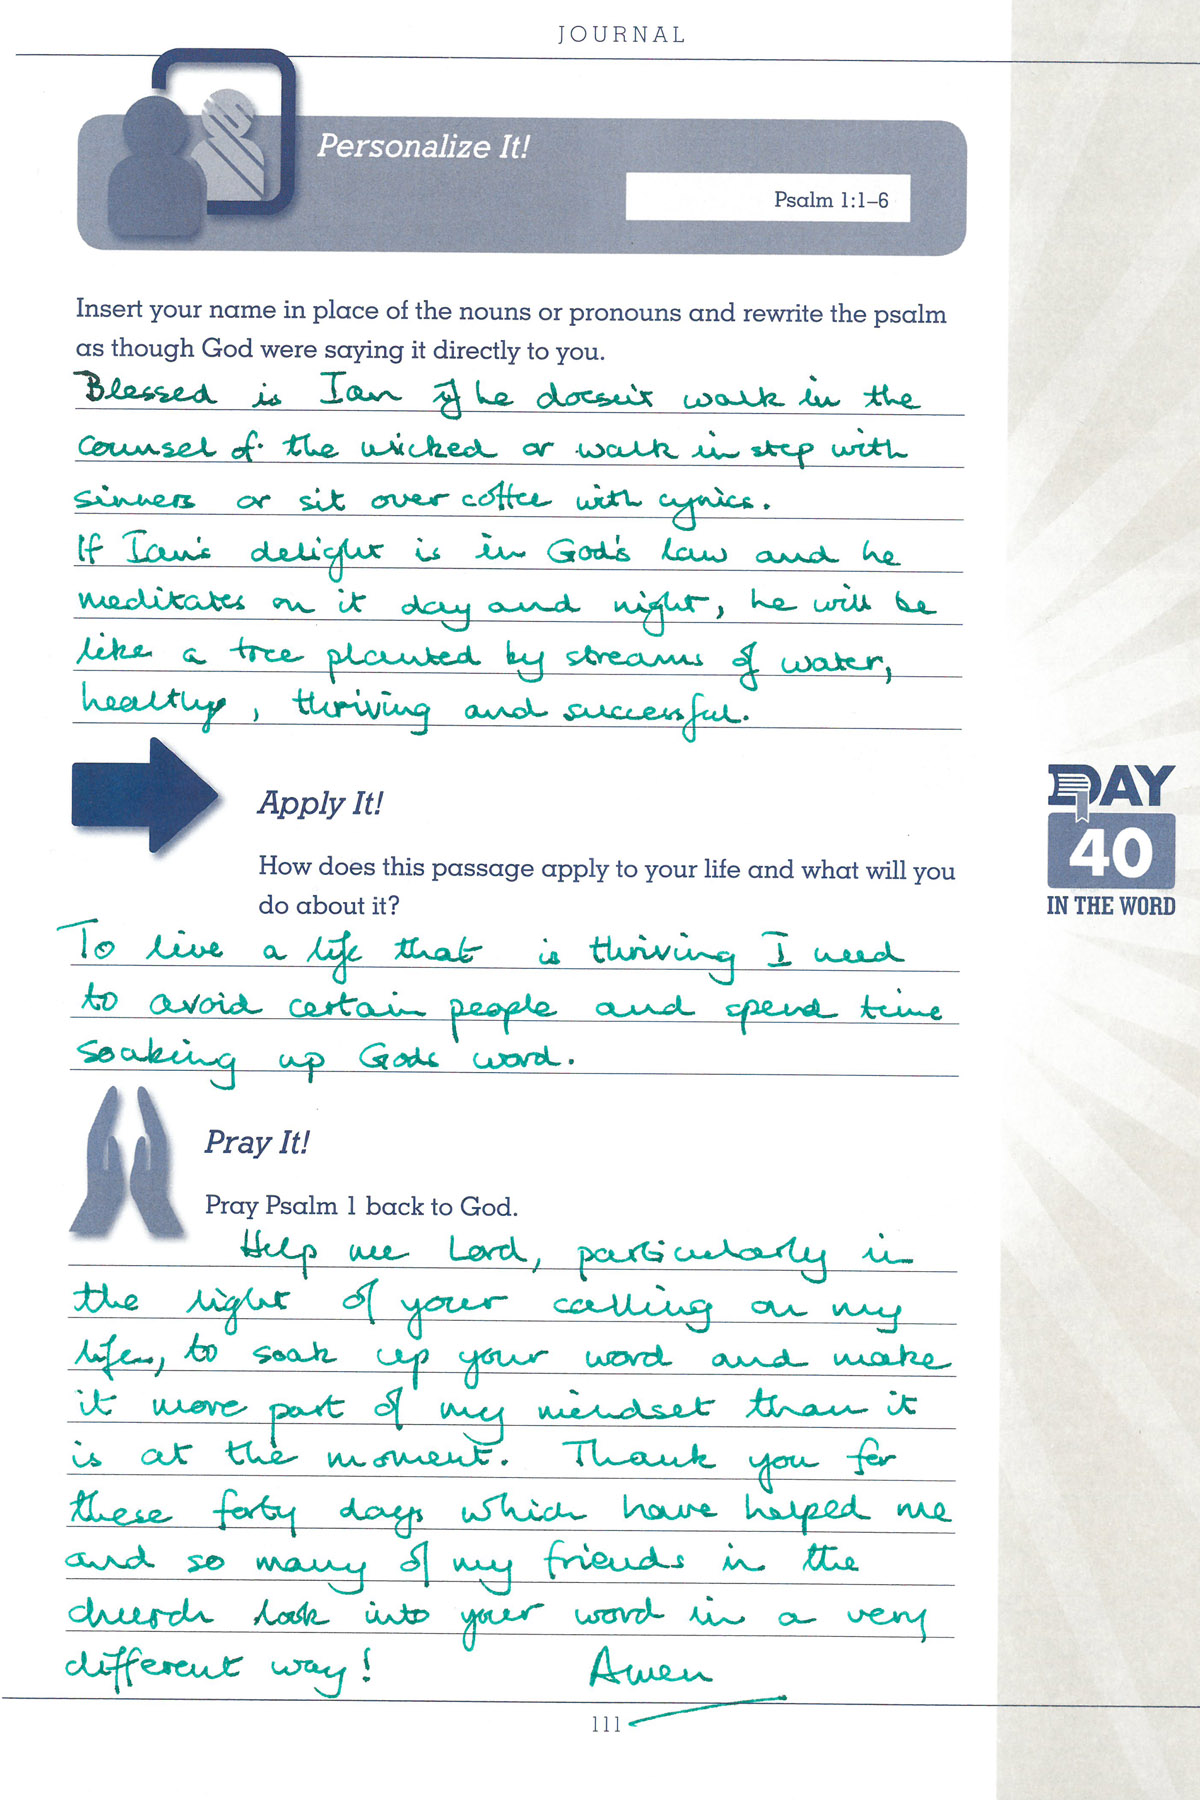 JOURNAL
Personalize It!
Psalm 1:1–6
Insert your name in place of the nouns or pronouns and rewrite the psalm
as though God were saying it directly to you.
Blessed is Ian if he doesn't walk in the
counsel of the wicked or walk in step with
sinners or sit over coffee with cynics.
If Ian's delight is in God's law and he
meditates on it day and night, he will be
like a tree planted by streams of water,
healthy, thriving and successful.
Apply It!
How does this passage apply to your life and what will you
do about it?
To live a life that is thriving I need
to avoid certain people and spend time
soaking up Gods word.
DAY
40
IN THE WORD
Pray It!
Pray Psalm 1 back to God.
Help me Lord, particularly in
the light of your calling on my
life, to soak up your word and make
it more part of my mindset than it
is at the moment. Thank you for
these forty days which have helped me
and so many of my friends in the
church look into your word in a very
different way! Amen
111